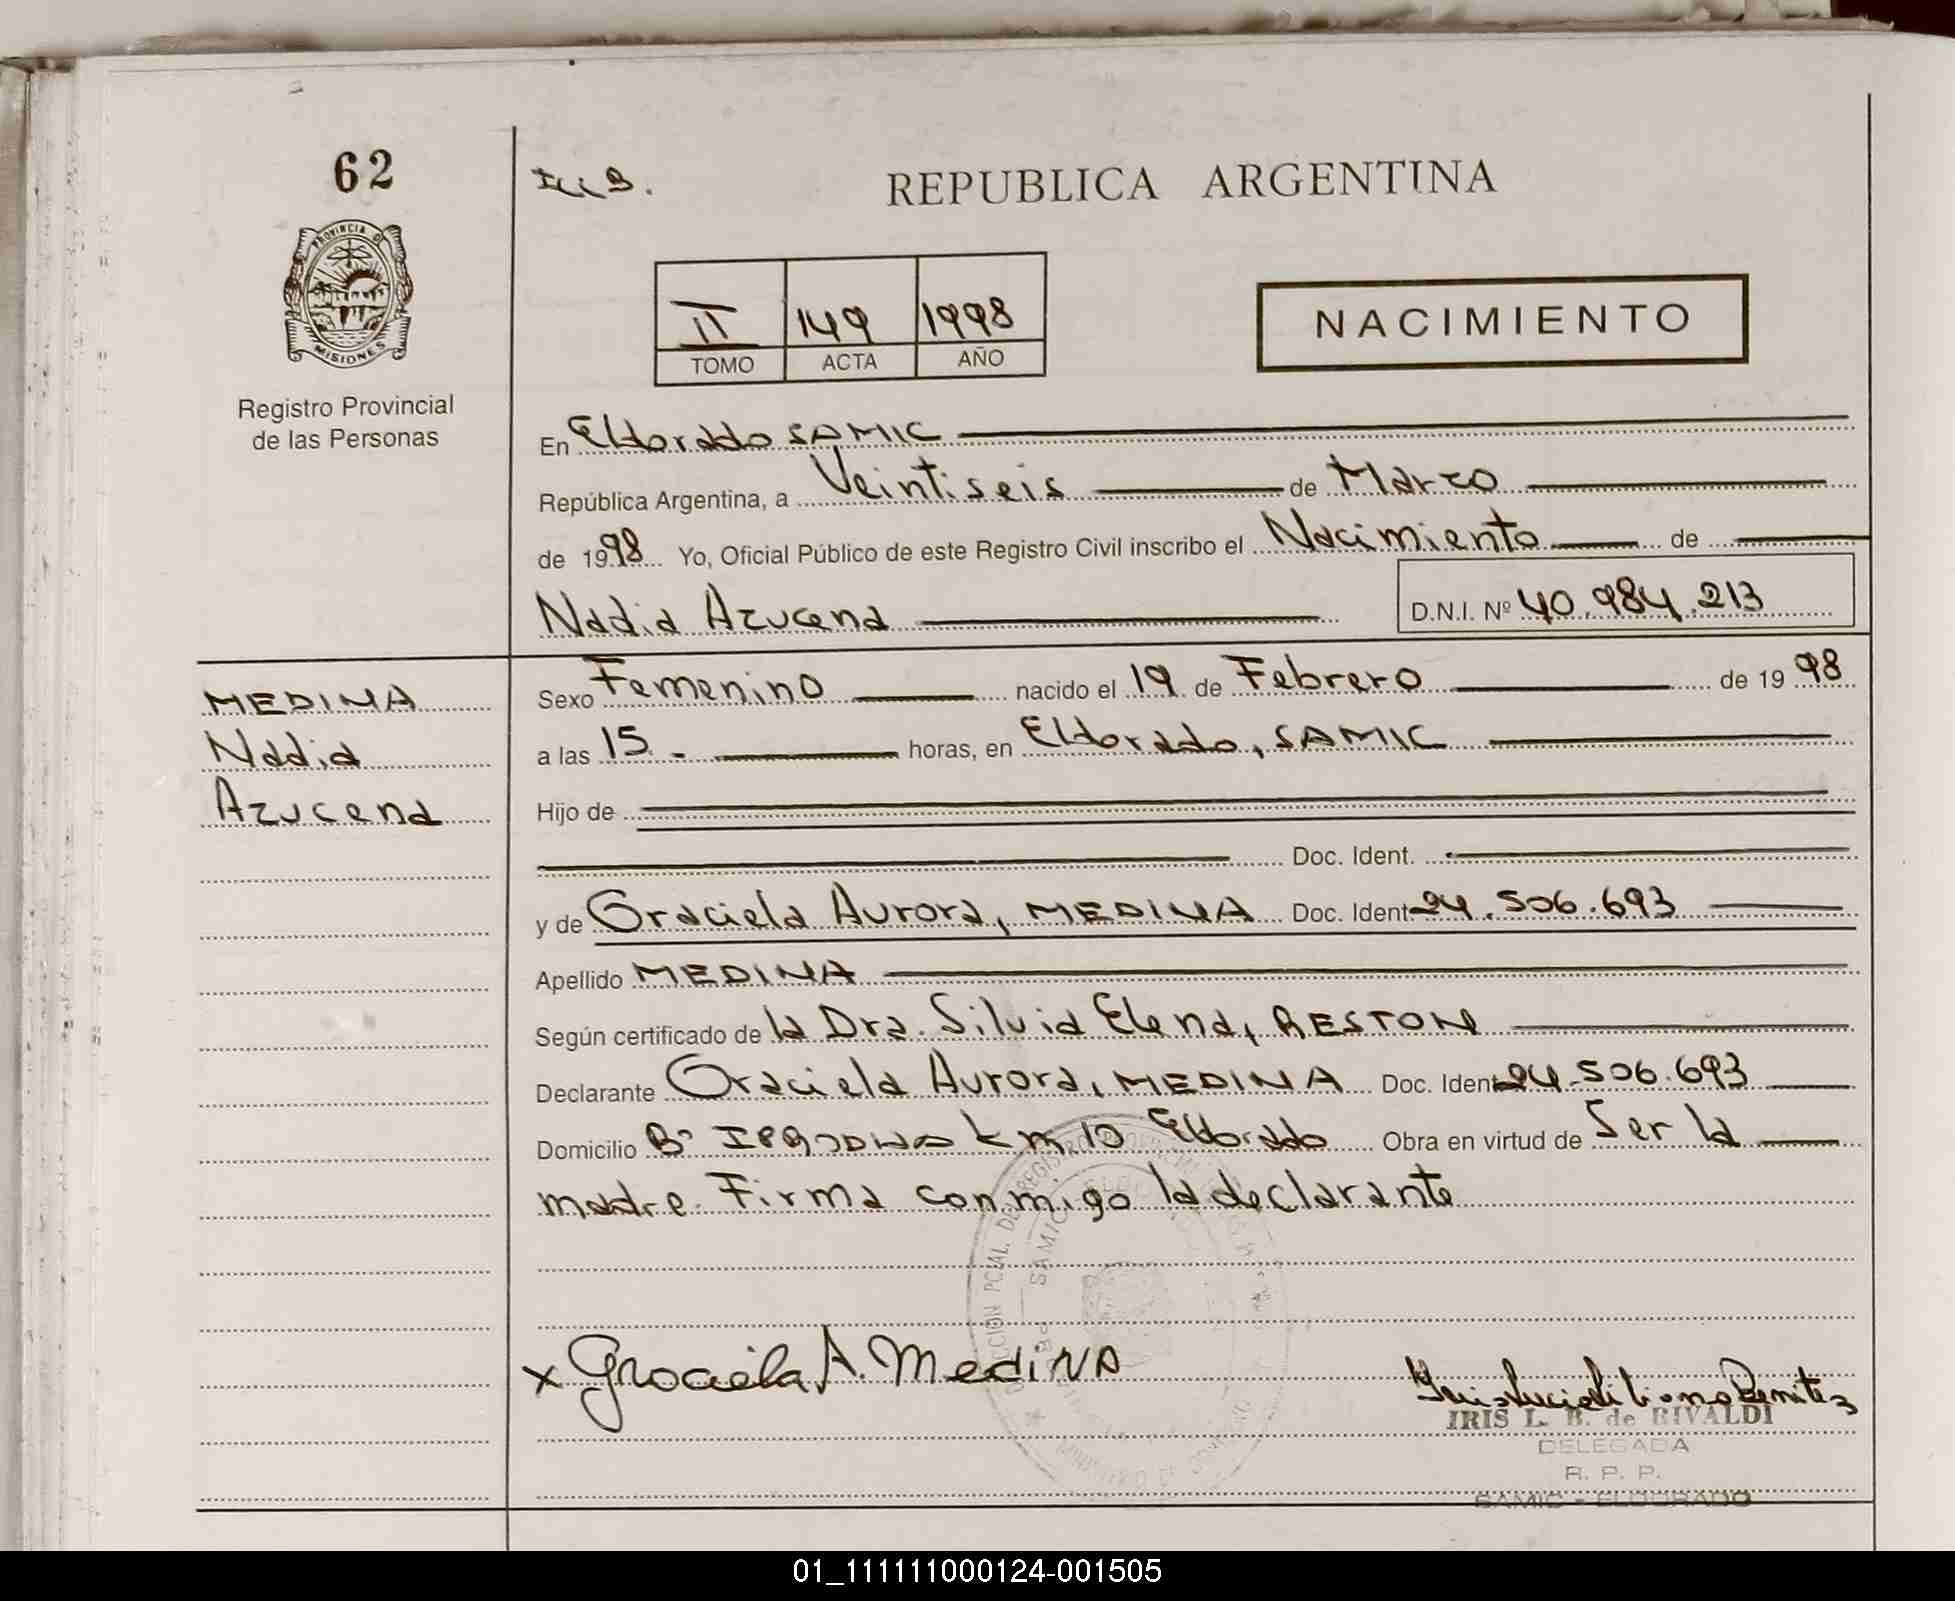 62
REPUBLICA ARGENTINA
PROVINCIA DE
MISIONES
Registro Provincial
de las Personas
II 149 1998
TOMO ACTA AÑO
NACIMIENTO
En Eldorado SAMIC
República Argentina, a Veintiseis de Marzo
de 1998 Yo, Oficial Público de este Registro Civil inscribo el Nacimiento de
Nadia Azucena D.N.I. Nº 40.984.213
MEDINA
Nadia
Azucena
Sexo Femenino nacido el 19 de Febrero de 1998
a las 15.- horas, en Eldorado, SAMIC
Hijo de
Doc. Ident.
y de Graciela Aurora, MEDINA Doc. Ident 24.506.693
Apellido MEDINA
Según certificado de la Dra. Silvia Elena, RESTON
Declarante Graciela Aurora, MEDINA Doc. Ident 24.506.693
Domicilio Bº km 10 Eldorado Obra en virtud de Ser la
madre. Firma conmigo la declarante
x Graciela A. Medina
IRIS L. B. de RIVALDI
DELEGADA
R. P. P.
SAMIC - ELDORADO
01_111111000124-001505